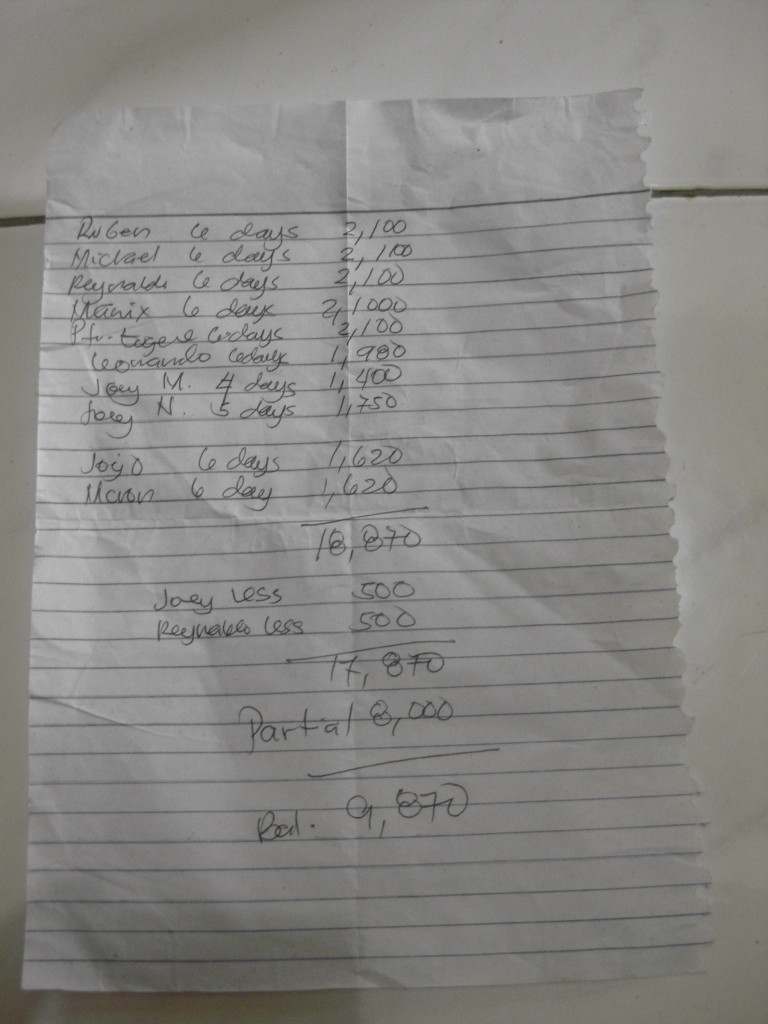 Ruben 6 days 2,100
Michael 6 days 2,100
Reynaldo 6 days 2,100
Manix 6 days 2,1000
Eugene 6 days 2,100
Leonardo 6 days 1,980
Joey M. 4 days 1,400
Joey N. 5 days 1,750
Jojo 6 days 1,620
6 day 1,620
18,870
Joey Less 500
Reynaldo Less 500
17,870
Partial 8,000
Bal. 9,870